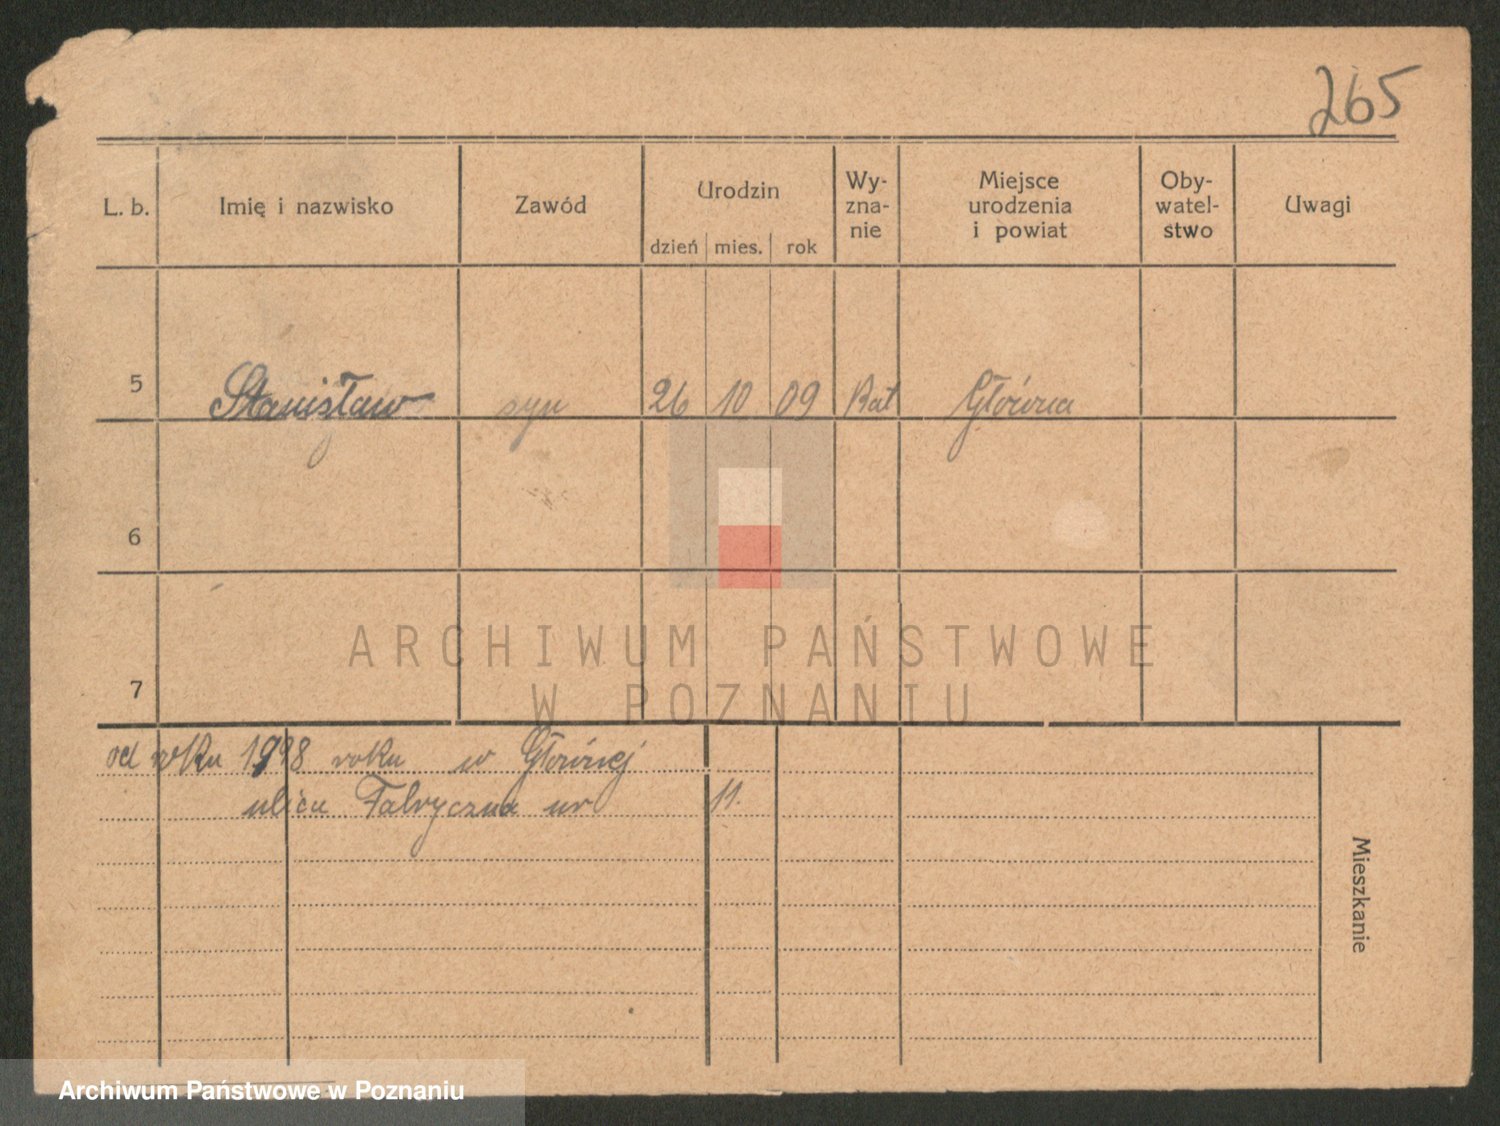 265
L. b. Imię i nazwisko Zawód Urodzin Wy-zna-nie Miejsce urodzenia i powiat Oby-watel-stwo Uwagi
dzień mies. rok
5 Stanisław syn 26 10 09 Kat Główna
6
7
od roku roku w Głównej
ulica Fabryczna nr 11.
Mieszkanie
ARCHIWUM PAŃSTWOWE
W POZNANIU
Archiwum Państwowe w Poznaniu